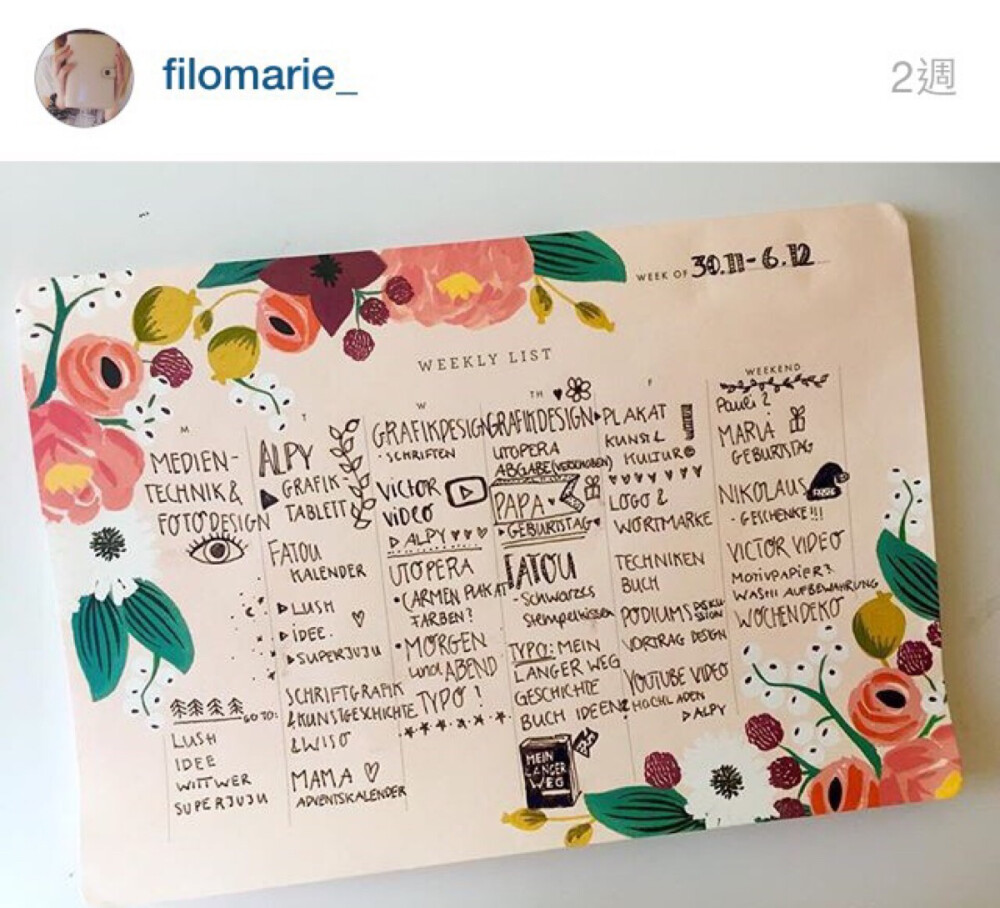 filomarie_
2週
WEEK OF 30.11-6.12
WEEKLY LIST
M
MEDIEN-
TECHNIK &
FOTODESIGN
GO TO:
LUSH
IDEE
WITTWER
SUPERJUJU
T
ALPY
GRAFIK-
TABLETT
FATOU
KALENDER
LUSH
IDEE.
SUPERJUJU
SCHRIFTGRAFIK
& KUNSTGESCHICHTE
& WISO
MAMA
ADVENTSKALENDER
W
GRAFIKDESIGN
· SCHRIFTEN
VICTOR
VIDEO
ALPY
UTOPERA
· CARMEN PLAKAT
FARBEN?
· MORGEN
und ABEND
TYPO!
TH
GRAFIKDESIGN
UTOPERA
ABGABE (VERSCHOBEN)
PAPA
GEBURTSTAG
FATOU
- SCHWARZES
STEMPELKISSEN
TYPO: MEIN
LANGER WEG
GESCHICHTE
BUCH IDEEN
MEIN
LANGER
WEG
F
PLAKAT
KUNST &
KULTUR
LOGO &
WORTMARKE
TECHNIKEN
BUCH
PODIUMSDISKUSSION
VORTRAG DESIGN
YOUTUBE VIDEO
HOCHLADEN
ALPY
WEEKEND
Pauli?
MARIA
GEBURTSTAG
NIKOLAUS
- GESCHENKE!!!
VICTOR VIDEO
MOTIVPAPIER?
WASHI AUFBEWAHRUNG
WOCHENDEKO